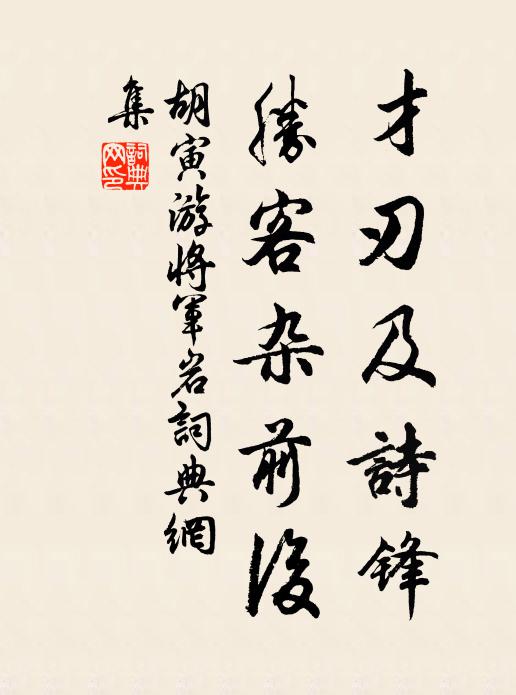 才刃及詩鋒
勝客杂前後
胡寅游將軍岩詞典網
集
詞典
网印